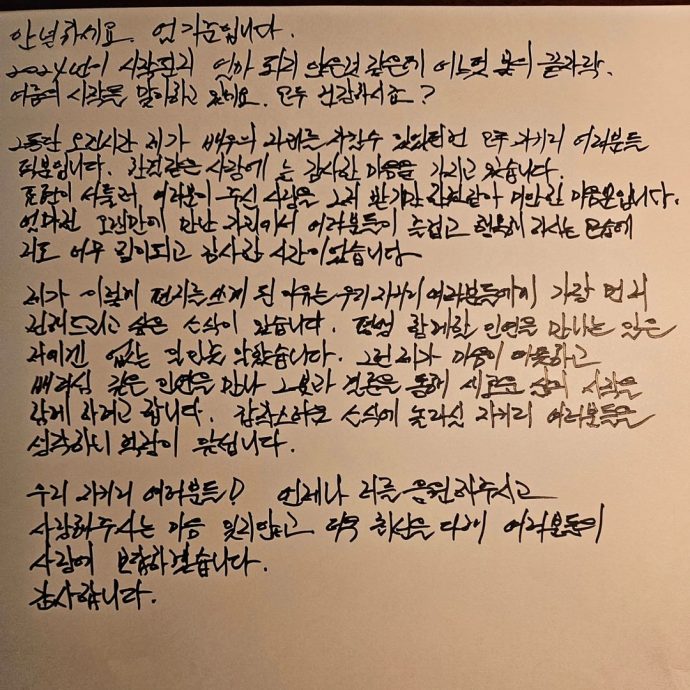 안녕하세요. 엄기준입니다.
2024년이 시작된지 얼마 되지 않은것 같은데 어느덧 봄의 끝자락.
여름의 시작을 맞이하고 있네요. 모두 건강하시죠?
그동안 오랜시간 제가 배우의 자리를 지킬수 있었던건 모두 자기지 여러분들
덕분입니다. 한결같은 사랑에 늘 감사한 마음을 가지고 있습니다.
표현이 서툴러, 여러분이 주신 사랑을 그저 받기만 한것같아 미안한 마음뿐입니다.
얼마전 오랜만에 만난 자리에서 여러분들이 즐겁고 행복해 하시는 모습에
저도 너무 힘이되고 감사한 시간이었습니다
제가 이렇게 편지를 쓰게 된 이유는 우리 자기지 여러분들에게 가장 먼저
전해드리고 싶은 소식이 있습니다. 평생 함께할 인연을 만나는 일은
저에겐 없는 일인줄 알았습니다. 그런 제가 마음이 따뜻하고
배려심 깊은 인연을 만나 그녀와 결혼을 통해 새로운 삶의 시작을
함께 하려고 합니다. 갑작스러운 소식에 놀라실 자기지 여러분들을
생각하니 걱정이 앞섭니다.
우리 자기지 여러분들! 언제나 저를 응원해주시고
사랑해주시는 마음 잊지않고 더욱 최선을 다해 여러분들의
사랑에 보답하겠습니다.
감사합니다.